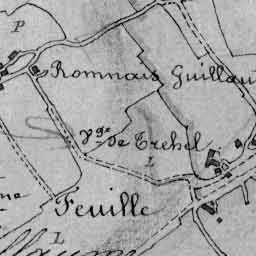 P
Romnais Guillau
Vge de Trehel
L
Feuille
L